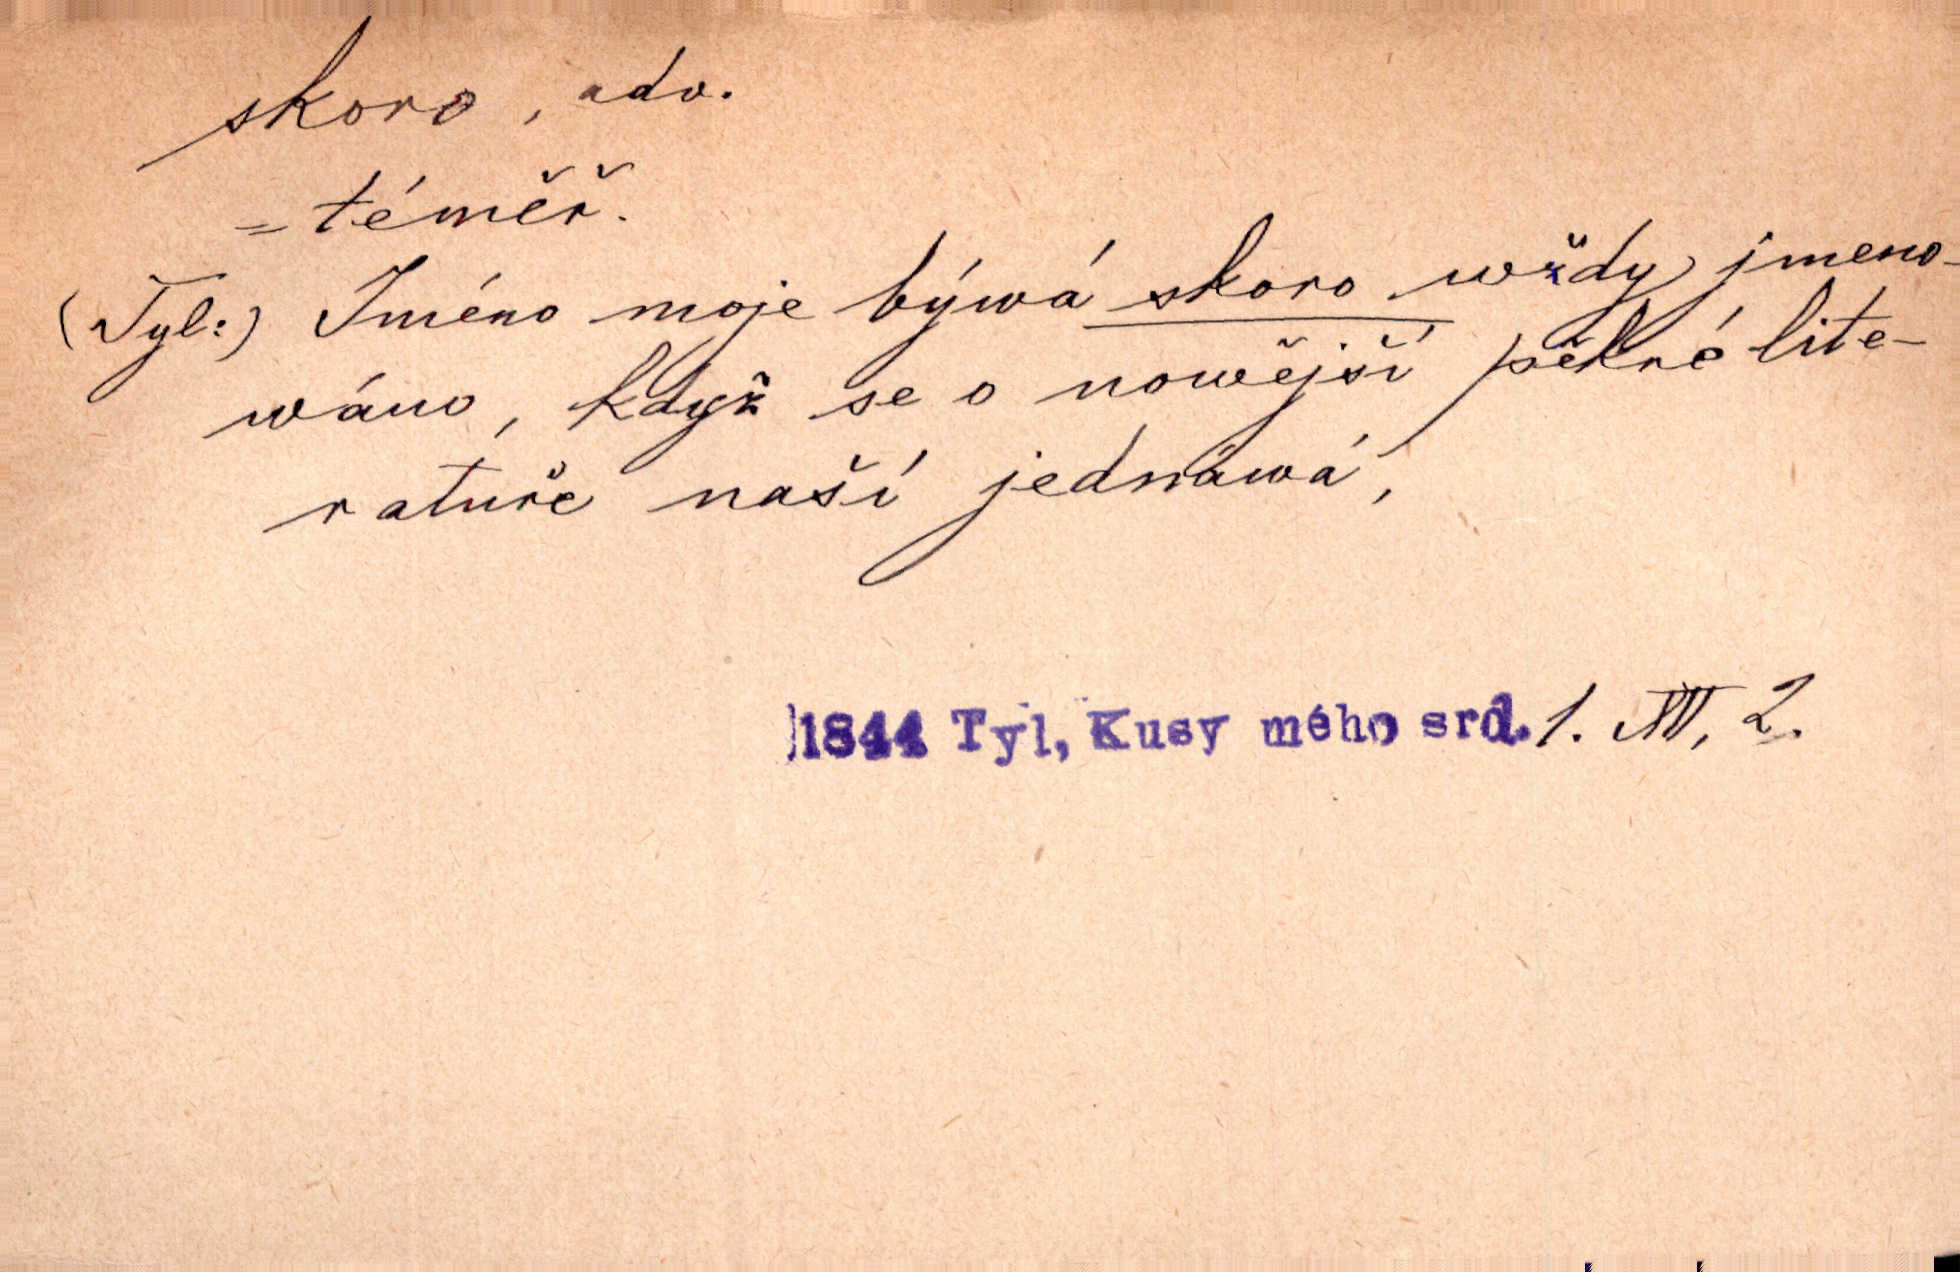 skoro, adv.
= téměř.
(Tyl:) Jméno moje býwá skoro wždy jmeno-
wáno, když se o nowější pěkné lite-
ratuře naší jednáwá,
1844 Tyl, Kusy mého srd. 1. VII, 2.